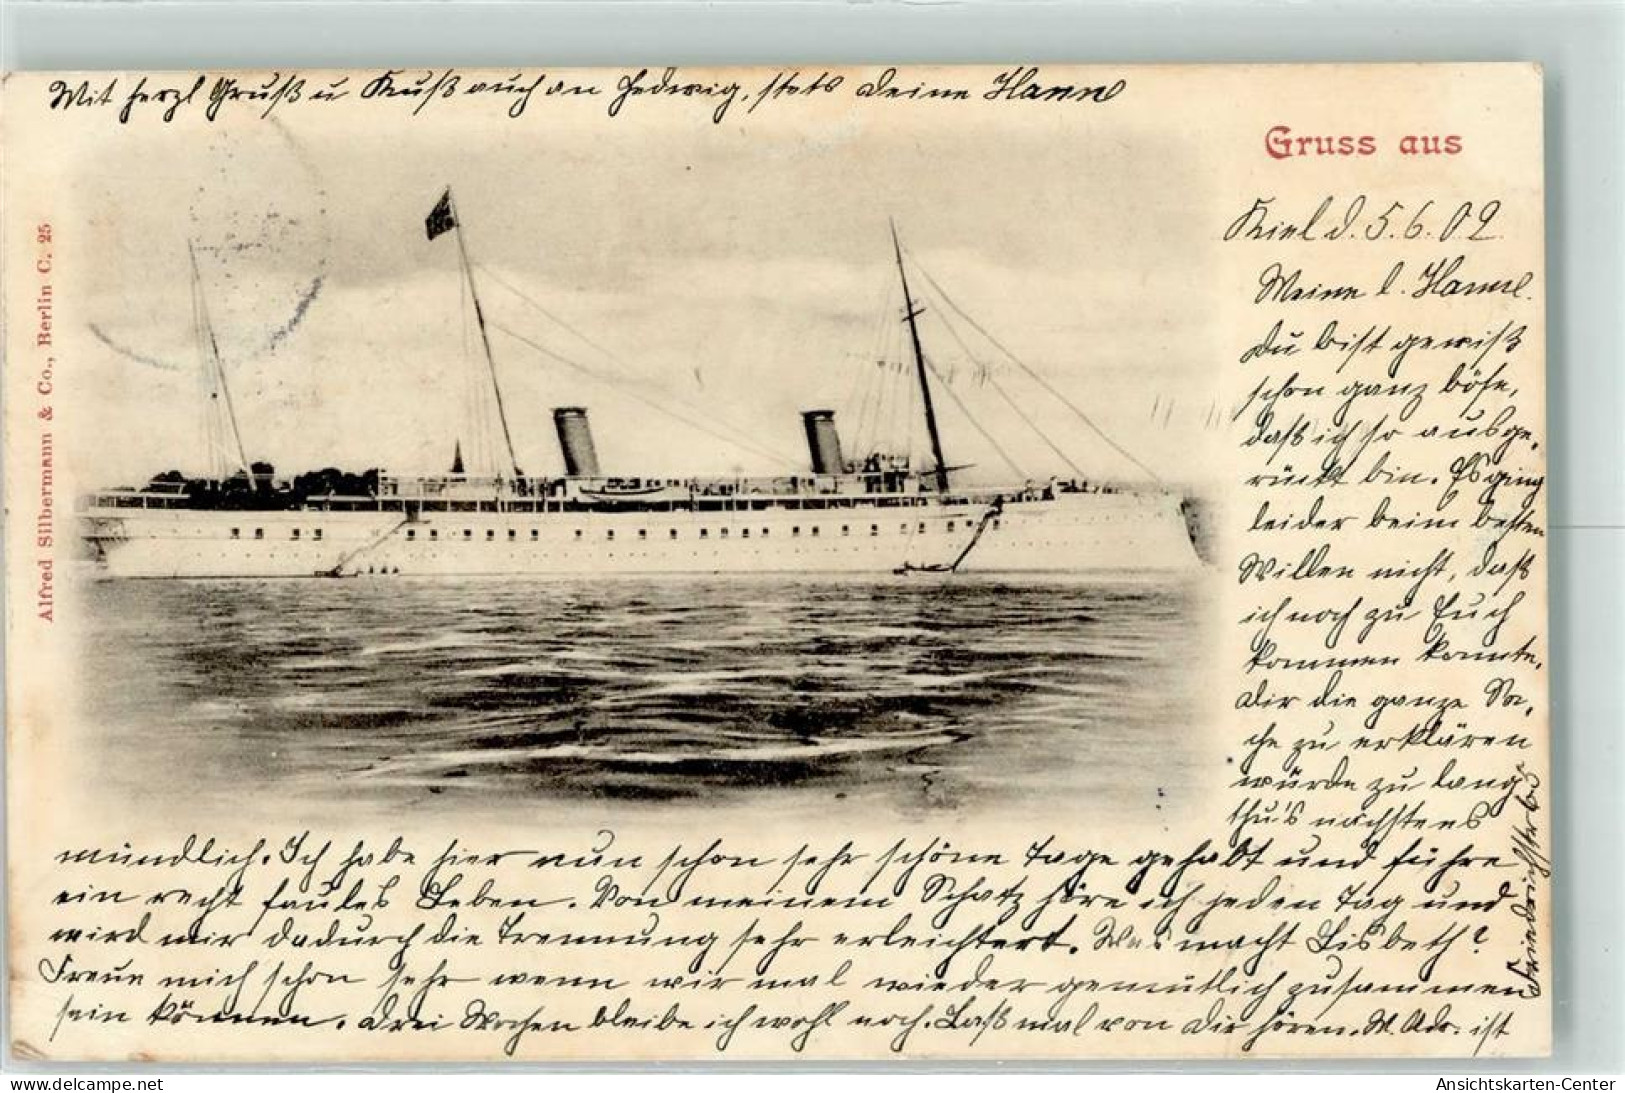 Mit herzl Gruß u Kuß auch an Hedwig, stets Deine Hanne
Gruss aus
Alfred Silbermann & Co., Berlin C. 25
Kiel d. 5.6.02.
Meine l. Hanne.
Du bist gewiß
schon ganz böse,
daß ich so ausge-
rückt bin. Es ging
leider beim besten
Willen nicht, daß
ich noch zu Euch
kommen konnte.
Dir die ganze Sa-
che zu erklären
würde zu lang
thu's nächstens
mündlich. Ich habe hier nun schon sehr schöne Tage gehabt und führe
ein recht faules Leben. Von meinem Schatz höre ich jeden Tag und
wird mir dadurch die Trennung sehr erleichtert. Was macht Lisbeth?
Freue mich schon sehr wenn wir mal wieder gemütlich zusammen
sein können. Drei Wochen bleibe ich wohl noch. Laß mal von Dir hören. M. Adr. ist
delcampe.net
Ansichtskarten-Center